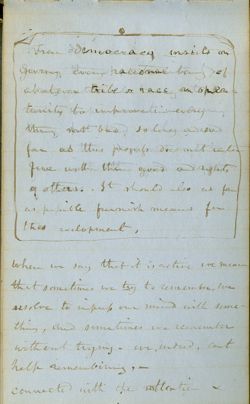 True Democracy insists on
giving every rational being of
whatever tribe or race an oppor
tunity to improve in every
thing not bad, so long and so
far as this progress does not inter
fere with the good and rights
of others. It should also as far
as possible furnish means for
this
When we say that it is active we mean
that sometimes we try to remember, we
resolve to impress our mind with some-
thing, and sometimes we remember
without trying - we, indeed, can't
help remembering, -
connected with the attention -